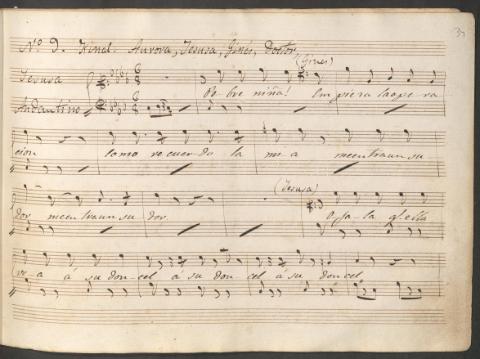 Nº 9. Final. Aurora, Jesusa, Ginés, Doctor
(Ginés)
Jesusa
Andantino
Po-bre niña! Empieza la ope ra
cion como re cuer do la mi a me entra un su
dor me entra un su dor
(Jesusa)
O ja-la qe ella
ve-a á su don-cel á su don cel á su doncel